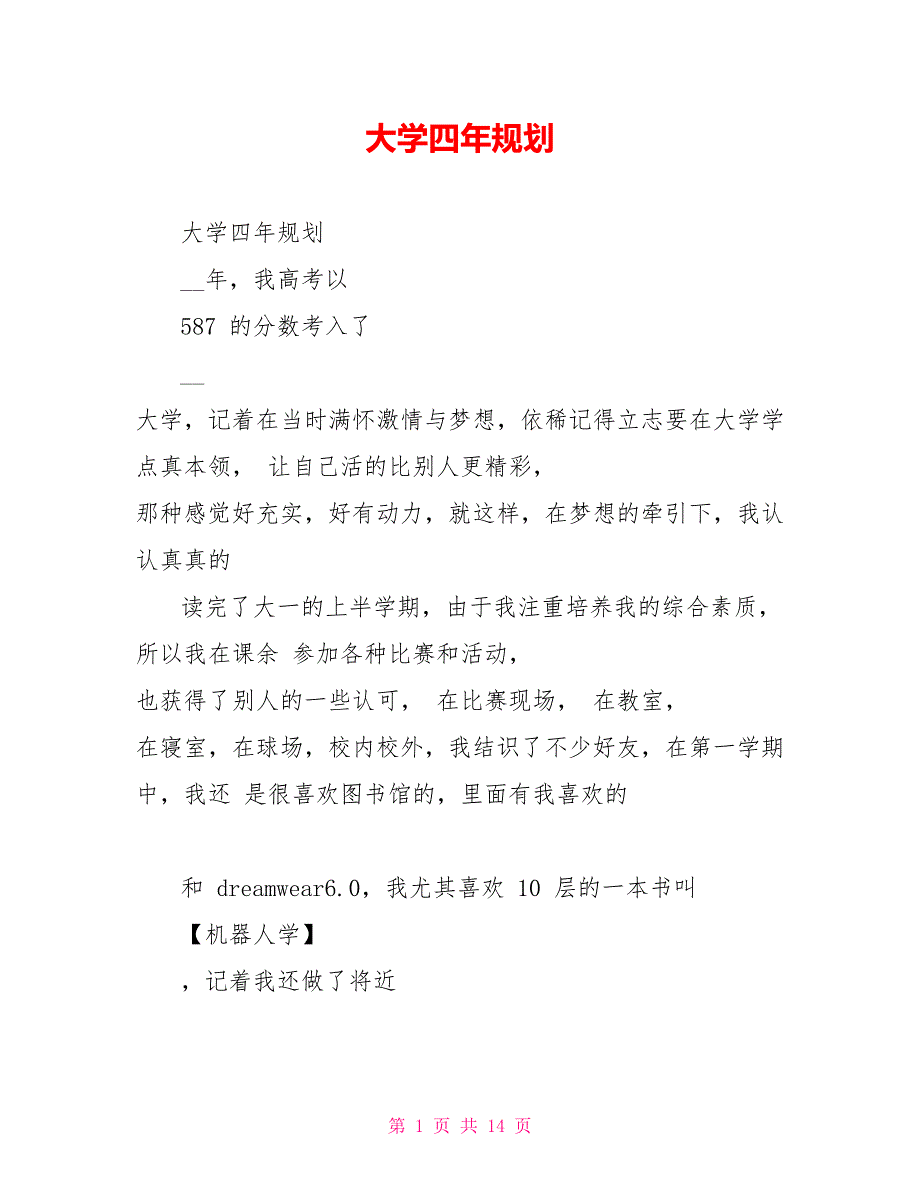 大学四年规划
大学四年规划
__年，我高考以
587 的分数考入了
__
大学，记着在当时满怀激情与梦想，依稀记得立志要在大学学
点真本领， 让自己活的比别人更精彩，
那种感觉好充实，好有动力，就这样，在梦想的牵引下，我认
认真真的
读完了大一的上半学期，由于我注重培养我的综合素质，
所以我在课余 参加各种比赛和活动，
也获得了别人的一些认可， 在比赛现场， 在教室，
在寝室，在球场，校内校外，我结识了不少好友，在第一学期
中，我还 是很喜欢图书馆的，里面有我喜欢的
和 dreamwear6.0，我尤其喜欢 10 层的一本书叫
【机器人学】
，记着我还做了将近
第 1 页 共 14 页